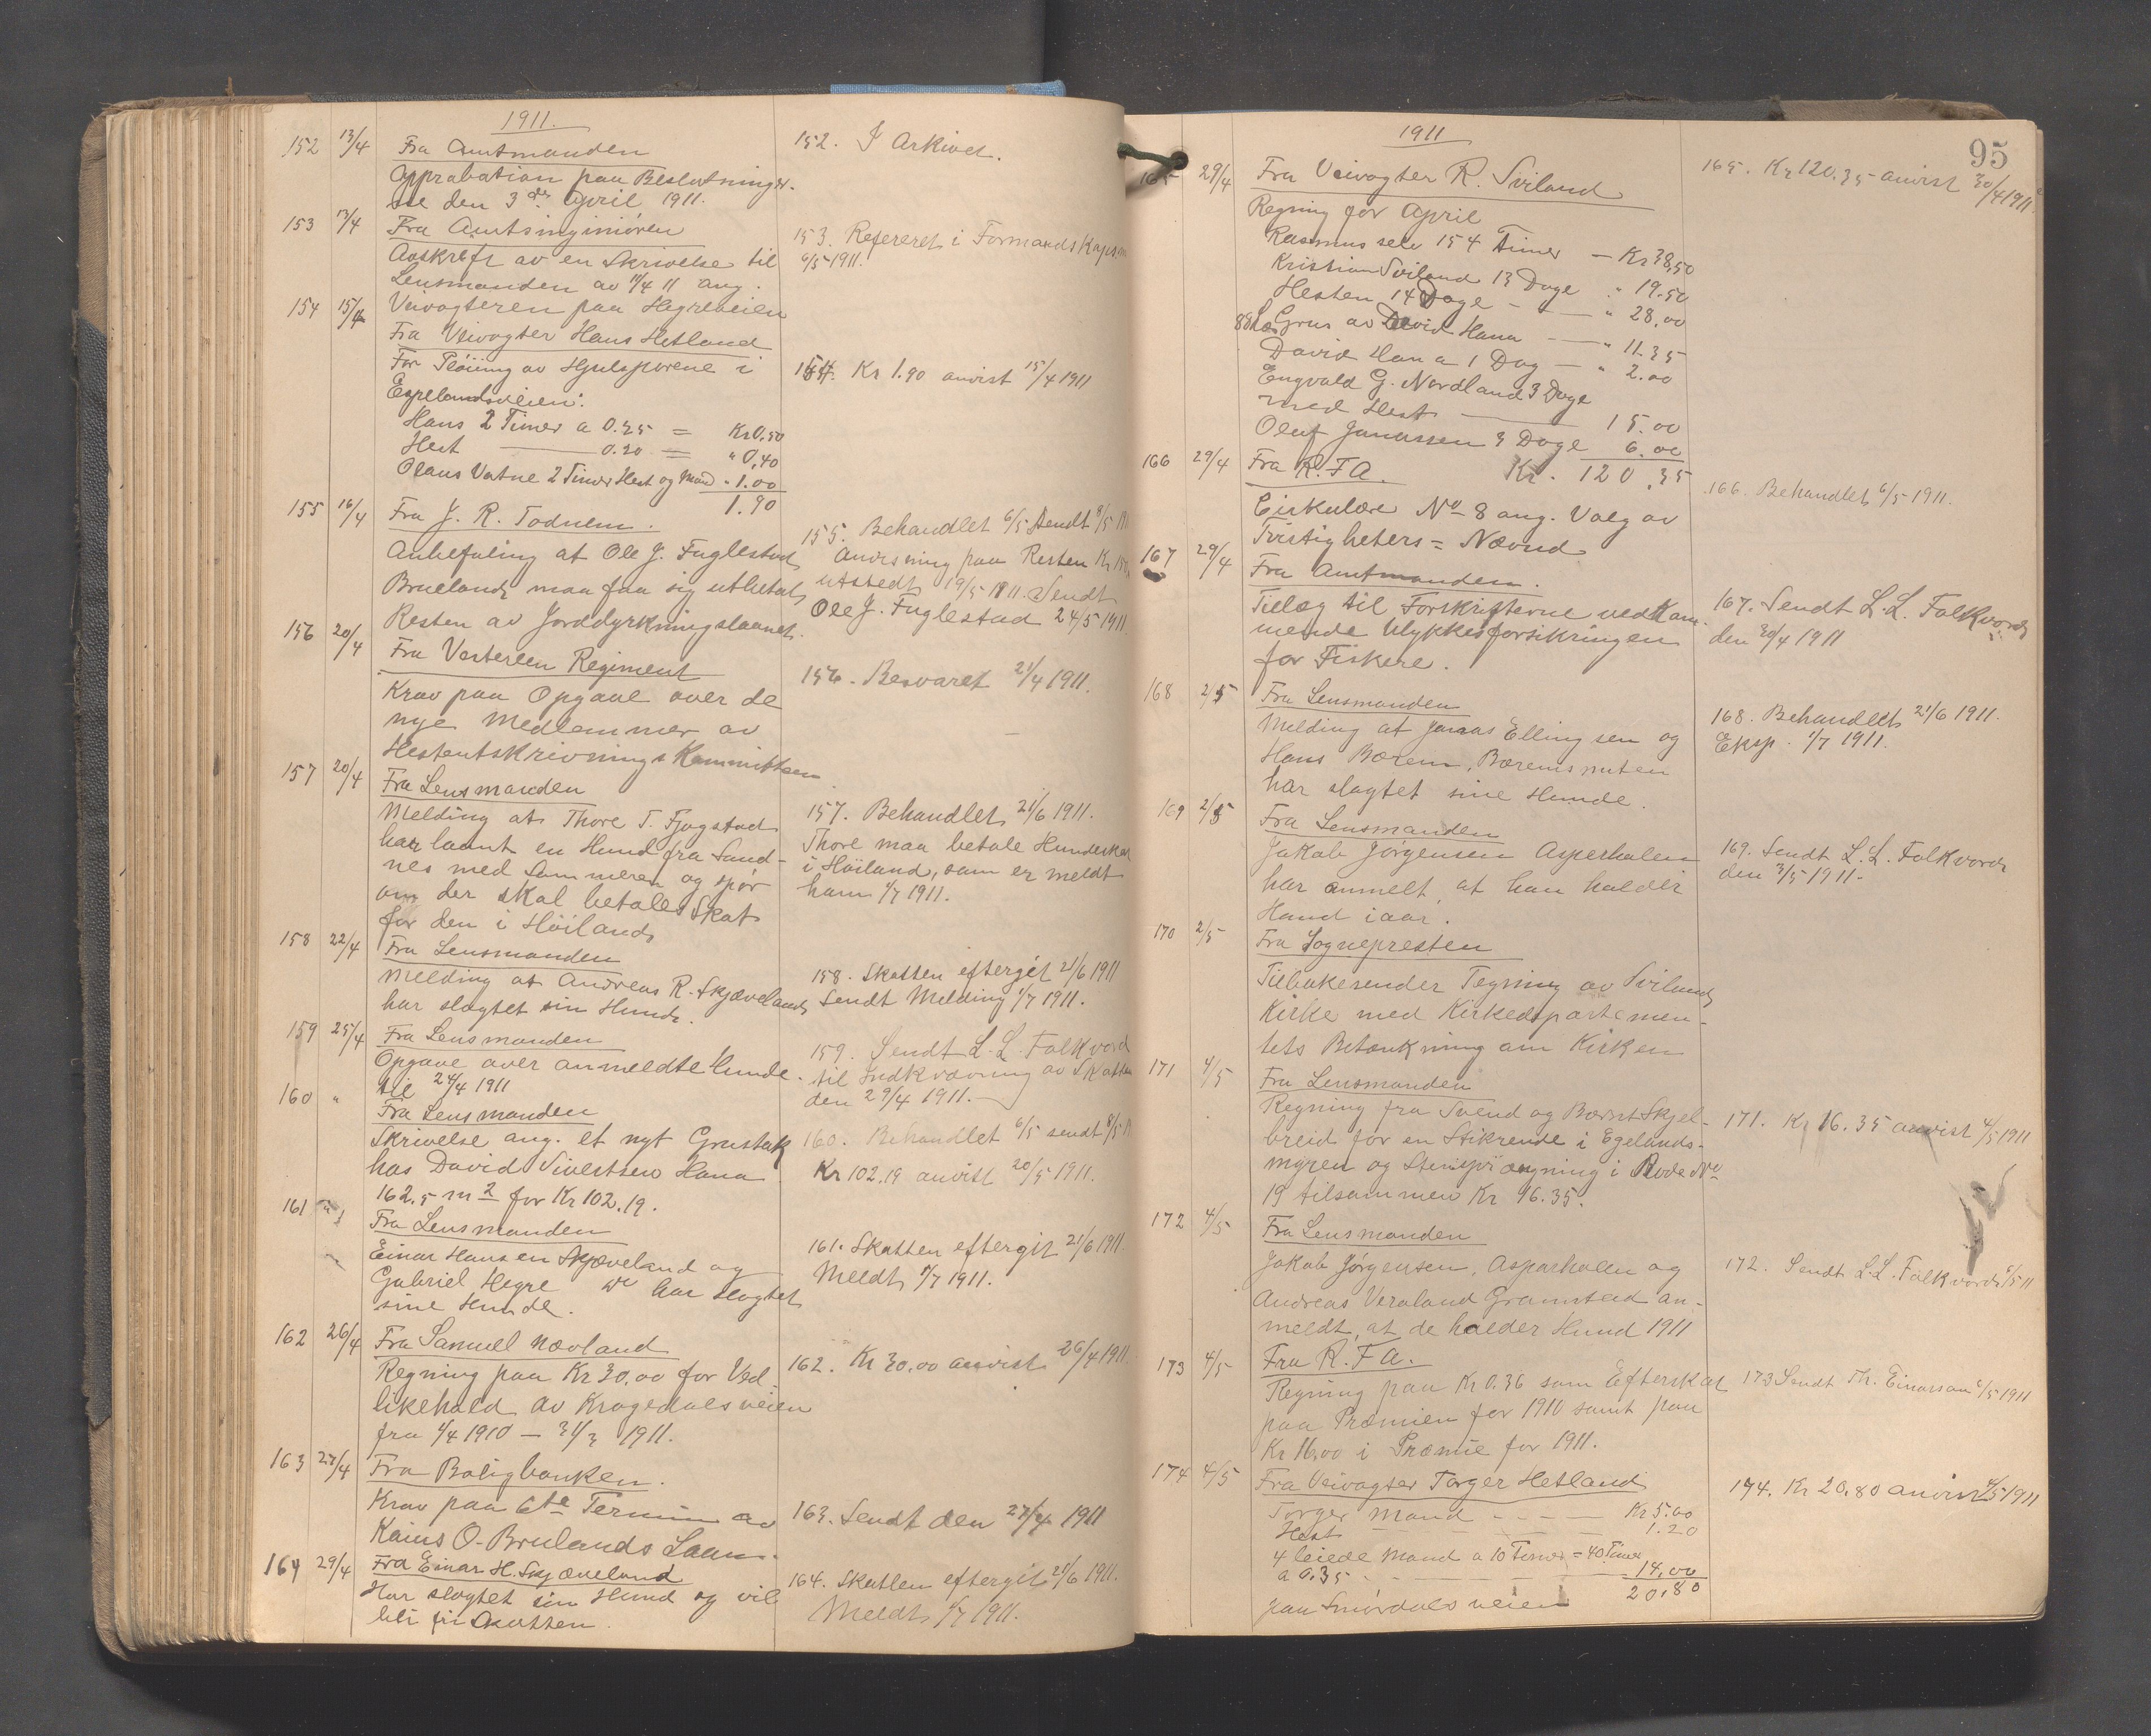 1911.
152 13/4 Fra Amtmanden
Approbation paa Beslutninger.
ne den 3de April 1911.
152. I Arkivet.
153 13/4 Fra Amtsinginiøren
Avskrift av en Skrivelse til
Lensmanden av 11/4 11 ang.
Veivogteren paa Hegreveien
153. Refereret i Formandskaps.m
6/5 1911.
154 15/4 Fra Veivogter Hans Hetland
For Pløiing av Hjulsporene i
Espelandsveien:
Hans 2 Timer a 0.25 = Kr 0,50
Hest 0.20 = " 0,40
Olaus Vatne 2 Timer Hest og Mand " 1.00
1.90
154. Kr 1.90 anvist 15/4 1911
155 16/4 Fra J. R. Todnem.
Anbefaling at Ole J. Fuglestad
Brueland maa faa sig utbetalt
Resten av Jorddyrkningslaanet.
155. Behandlet 6/5 Sendt 8/5 11
Anvisning paa Resten Kr
utstedt 19/5 1911. Sendt
Ole J. Fuglestad 24/5 1911.
156 20/4 Fra Vesterlen Regiment
Krav paa Opgave over de
nye Medlemmer av
Hesteutskrivnings Kommitteen
156. Besvaret 21/4 1911.
157 20/4 Fra Lensmanden
Melding at Thore T. Fjogstad
har laant en Hund fra Sand-
nes med Sommeren og spør
om der skal betales Skat
for den i Høiland
157. Behandlet 21/6 1911.
Thore maa betale Hundeskat
i Høiland, som er meldt
ham 1/7 1911.
158 22/4 Fra Lensmanden
Melding at Andreas R. Skjæveland
har slagtet sin Hund.
158. Skatten eftergit 21/6 1911
Sendt Melding 1/7 1911.
159 25/4 Fra Lensmanden
Opgave over anmeldte Hunde.
til 24/4 1911
159. Sendt L. L. Folkvord
til Indkrævning av Skatten
den 29/4 1911.
160 " Fra Lensmanden
Skrivelse ang. et nyt Grustak
hos David Sivertsen Hana
162.5 m2 for Kr 102.19.
160. Behandlet 6/5 sendt 8/5 11
Kr 102.19 anvist 20/5 1911.
161 " Fra Lensmanden
Einar Hansen Skjæveland og
Gabriel Hegre har slagtet
sine Hunde.
161. Skatten eftergit 21/6 1911.
Meldt 1/7 1911.
162 26/4 Fra Samuel Nævland
Regning paa Kr 30.00 for Ved-
likehold av Kragedalsveien
fra 1/4 1910 — 31/3 1911.
162. Kr 30.00 anvist 26/4 1911.
163 27/4 Fra Boligbanken.
Krav paa 6te Termin av
Kaius O. Brulands Laan.
163. Sendt den 27/4 1911
164 29/4 Fra Einar H. Skjæveland
Har slagtet sin Hund og vil
bli fri Skatten.
164. Skatten eftergit 21/6 1911.
Meldt 1/7 1911.
95
1911
165 29/4 Fra Veivogter R. Sviland
Regning for April
Rasmus selv 154 Timer — Kr 38,50
Kristian Sviland 13 Dage " 19.50
Hesten 14 Dage — — " 28.00
Grus av David Hana — " 11.35
David Hana 1 Dag — " 2.00
Engvald G. Nordland 3 Dage
med Hest — 15.00
Oluf Jonassen 3 Dage 6.00
Kr. 120.35
165. Kr 120.35 anvist 30/4 1911.
166 29/4 Fra R. F A.
Cirkulære No 8 ang. Valg av
Tvistigheters = Nævnd
166. Behandlet 6/5 1911.
167 29/4 Fra Amtmanden.
Tillæg til Forskrifterne vedkom-
mende Ulykkesforsikringen
for Fiskere.
167. Sendt L. L. Folkvord
den 30/4 1911
168 2/5 Fra Lensmanden
Melding at Jonas Ellingsen og
Hans Bærem, Bæremsnuten
har slagtet sine Hunde.
168. Behandlet 21/6 1911.
Eksp. 1/7 1911.
169 2/5 Fra Lensmanden
Jakob Jørgensen Asperholen
har anmelt, at han holder
Hund iaar.
169. Sendt L. L. Folkvord
den 3/5 1911.
170 2/5 Fra Sognepresten
Tilbakesender Tegning av Sviland
Kirke med Kirkedepartemen-
tets Betænkning om Kirken
171 4/5 Fra Lensmanden
Regning fra Svend og Bernt Skjel-
breid for en Stikrende i Egelands-
myren og Stensprængning i Rode No
19 tilsammen Kr 16.35.
171. Kr 16.35 anvist 4/5 1911
172 4/5 Fra Lensmanden
Jakob Jørgensen, Asparholen og
Andreas Veraland Grannstad an-
meldt, at de holder Hund 1911
172. Sendt L. L. Folkvord 6/5 11
173 4/5 Fra R. F A.
Regning paa Kr 0.36 som Efterskat
paa Præmien for 1910 samt paa
Kr 16.00 i Præmie for 1911.
173 Sendt Th. Einarson 6/5 1911
174 4/5 Fra Veivogter Torger Hetland
Torger Mand - - - — Kr 5.00
Hest 1.20
4 leiede Mand a 10 Timer = 40 Timer
a 0.35 14.00
20.80
paa Smørdalsveien
174. Kr 20.80 anvist 4/5 1911